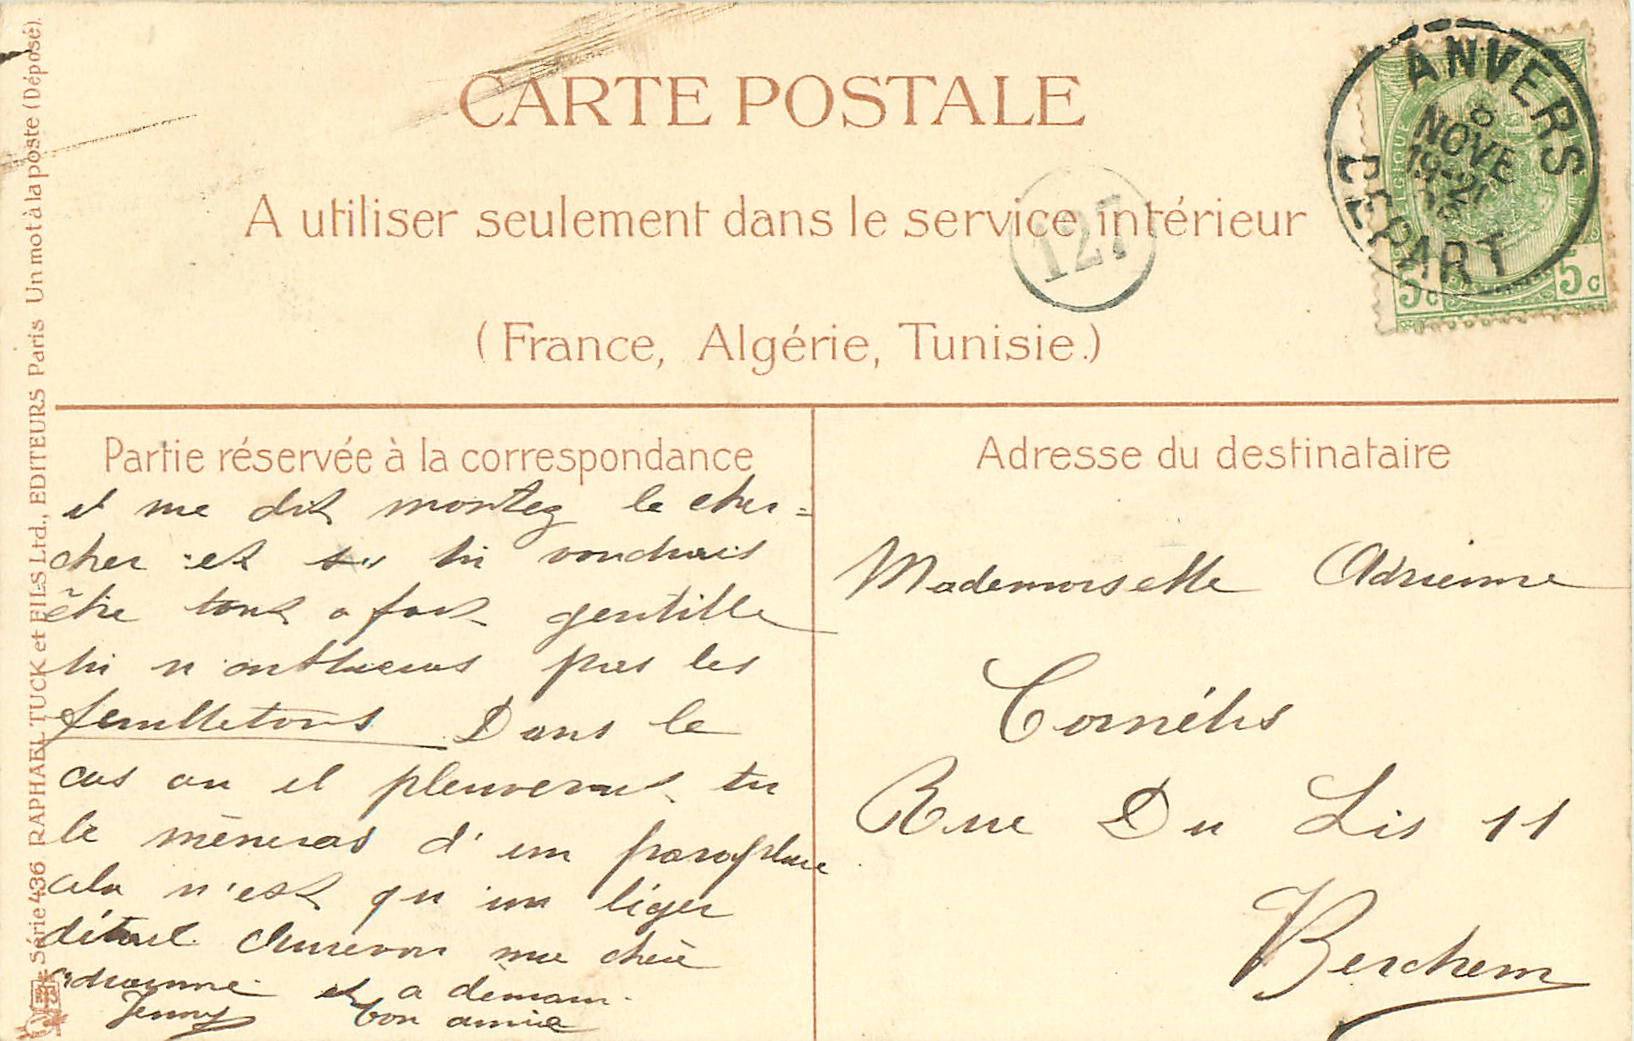 CARTE POSTALE
A utiliser seulement dans le service intérieur
(France, Algérie, Tunisie.)
127
ANVERS
6
NOVE
19-21
DEPART
5c 5c
Série 436 RAPHAEL TUCK et FILS Ltd., EDITEURS Paris Un mot à la poste (Déposé).
Partie réservée à la correspondance
et me dit montez le cher=
cher et tu voudrais
être tout a fait gentille
tu n'oublieras pas les
feuilletons Dans le
cas ou il pleuverait tu
te mèneras d'un parapluie
cela n'est qu'un léger
détail Aurevoir ma chère
adrienne et a demain.
Jenny bon amie
Adresse du destinataire
Mademoiselle Adrienne
Cornélis
Rue Du Lis 11
Berchem